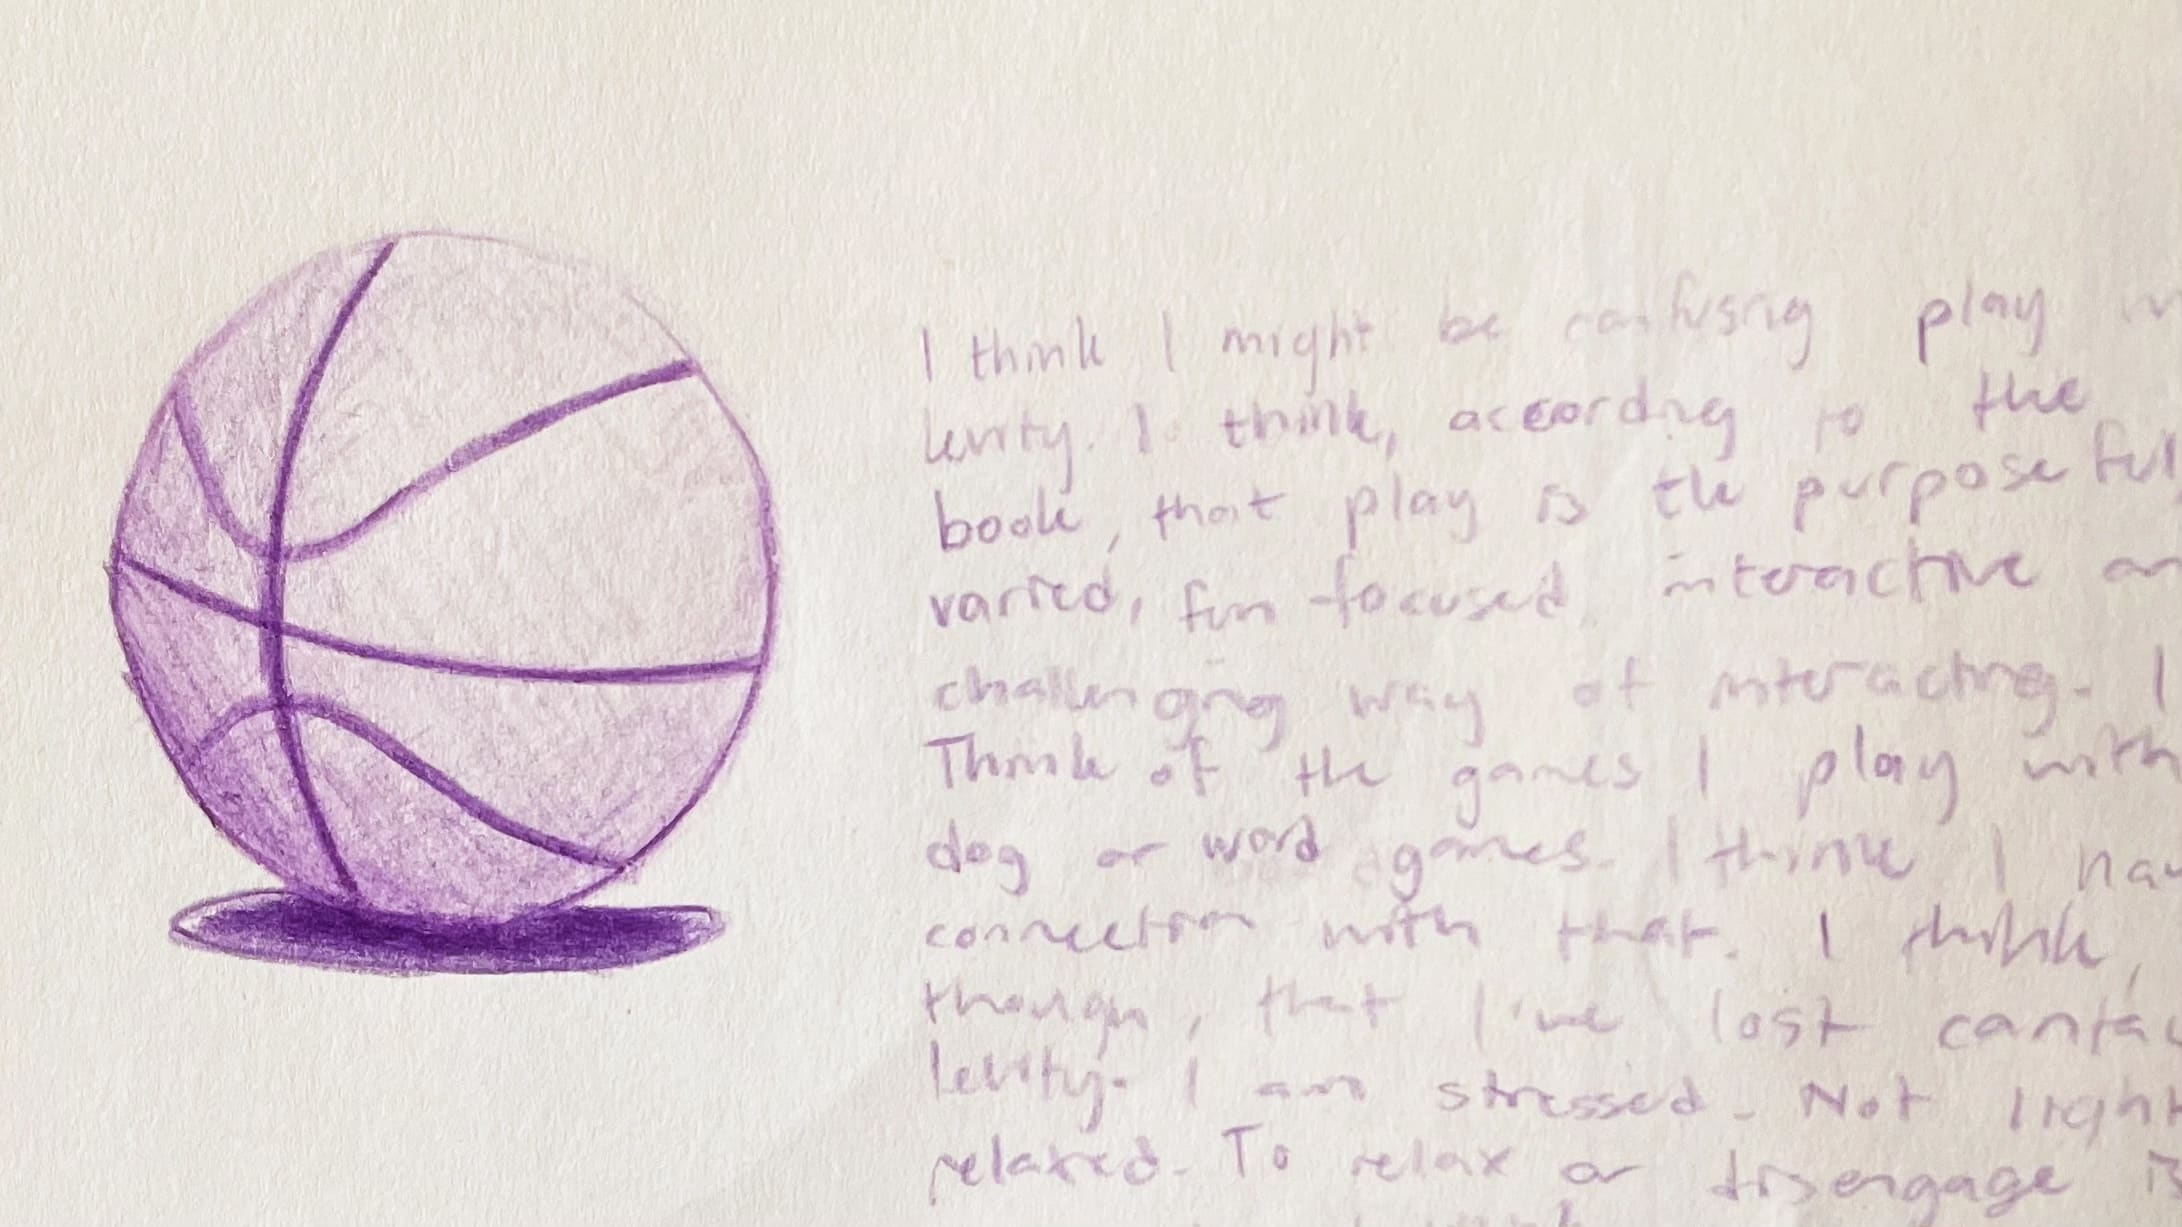 I think I might be confusing play
levity. I think, according to the
book, that play is the purposeful
varied, fun-focused, interactive
challenging way of interacting. I
Think of the games I play with
dog or word games. I think I
connection with that. I think,
though, that I've lost
levity. I am stressed. Not
relaxed. To relax or disengage